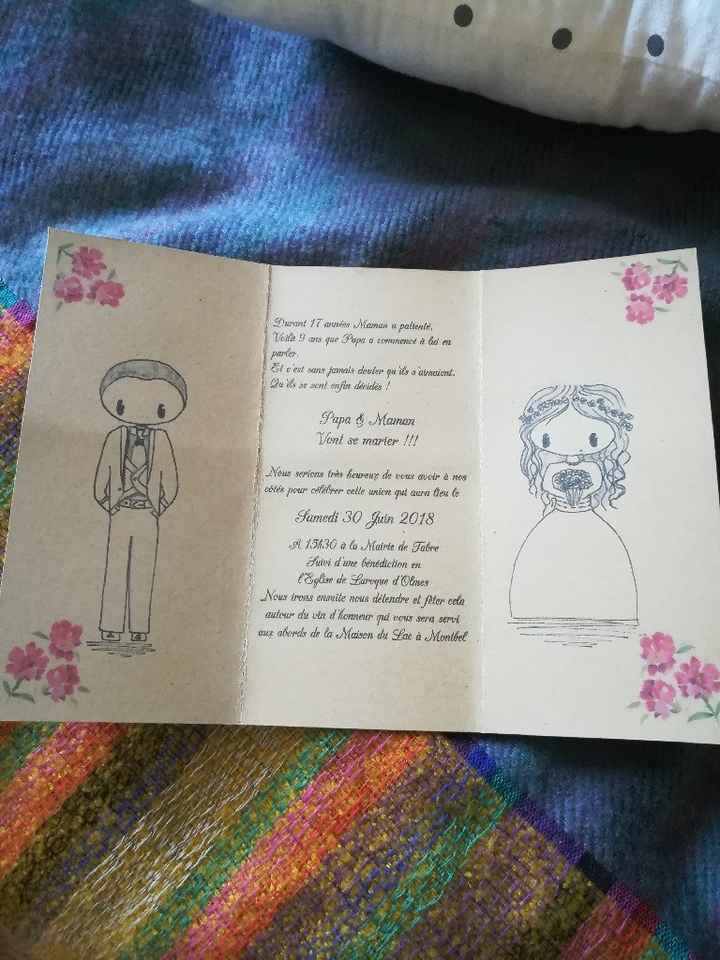 Durant 17 années Maman a patienté,
Voilà 9 ans que Papa a commencé à lui en
parler.
Et c'est sans jamais douter qu'ils s'aimaient,
Qu'ils se sont enfin décidés !
Papa & Maman
Vont se marier !!!
Nous serions très heureux de vous avoir à nos
côtés pour célébrer cette union qui aura lieu le
Samedi 30 Juin 2018
A 15h30 à la Mairie de Tabre
Suivi d'une bénédiction en
l'Eglise de Laroque d'Olmes
Nous irons ensuite nous détendre et fêter cela
autour du vin d'honneur qui vous sera servi
aux abords de la Maison du Lac à Montbel